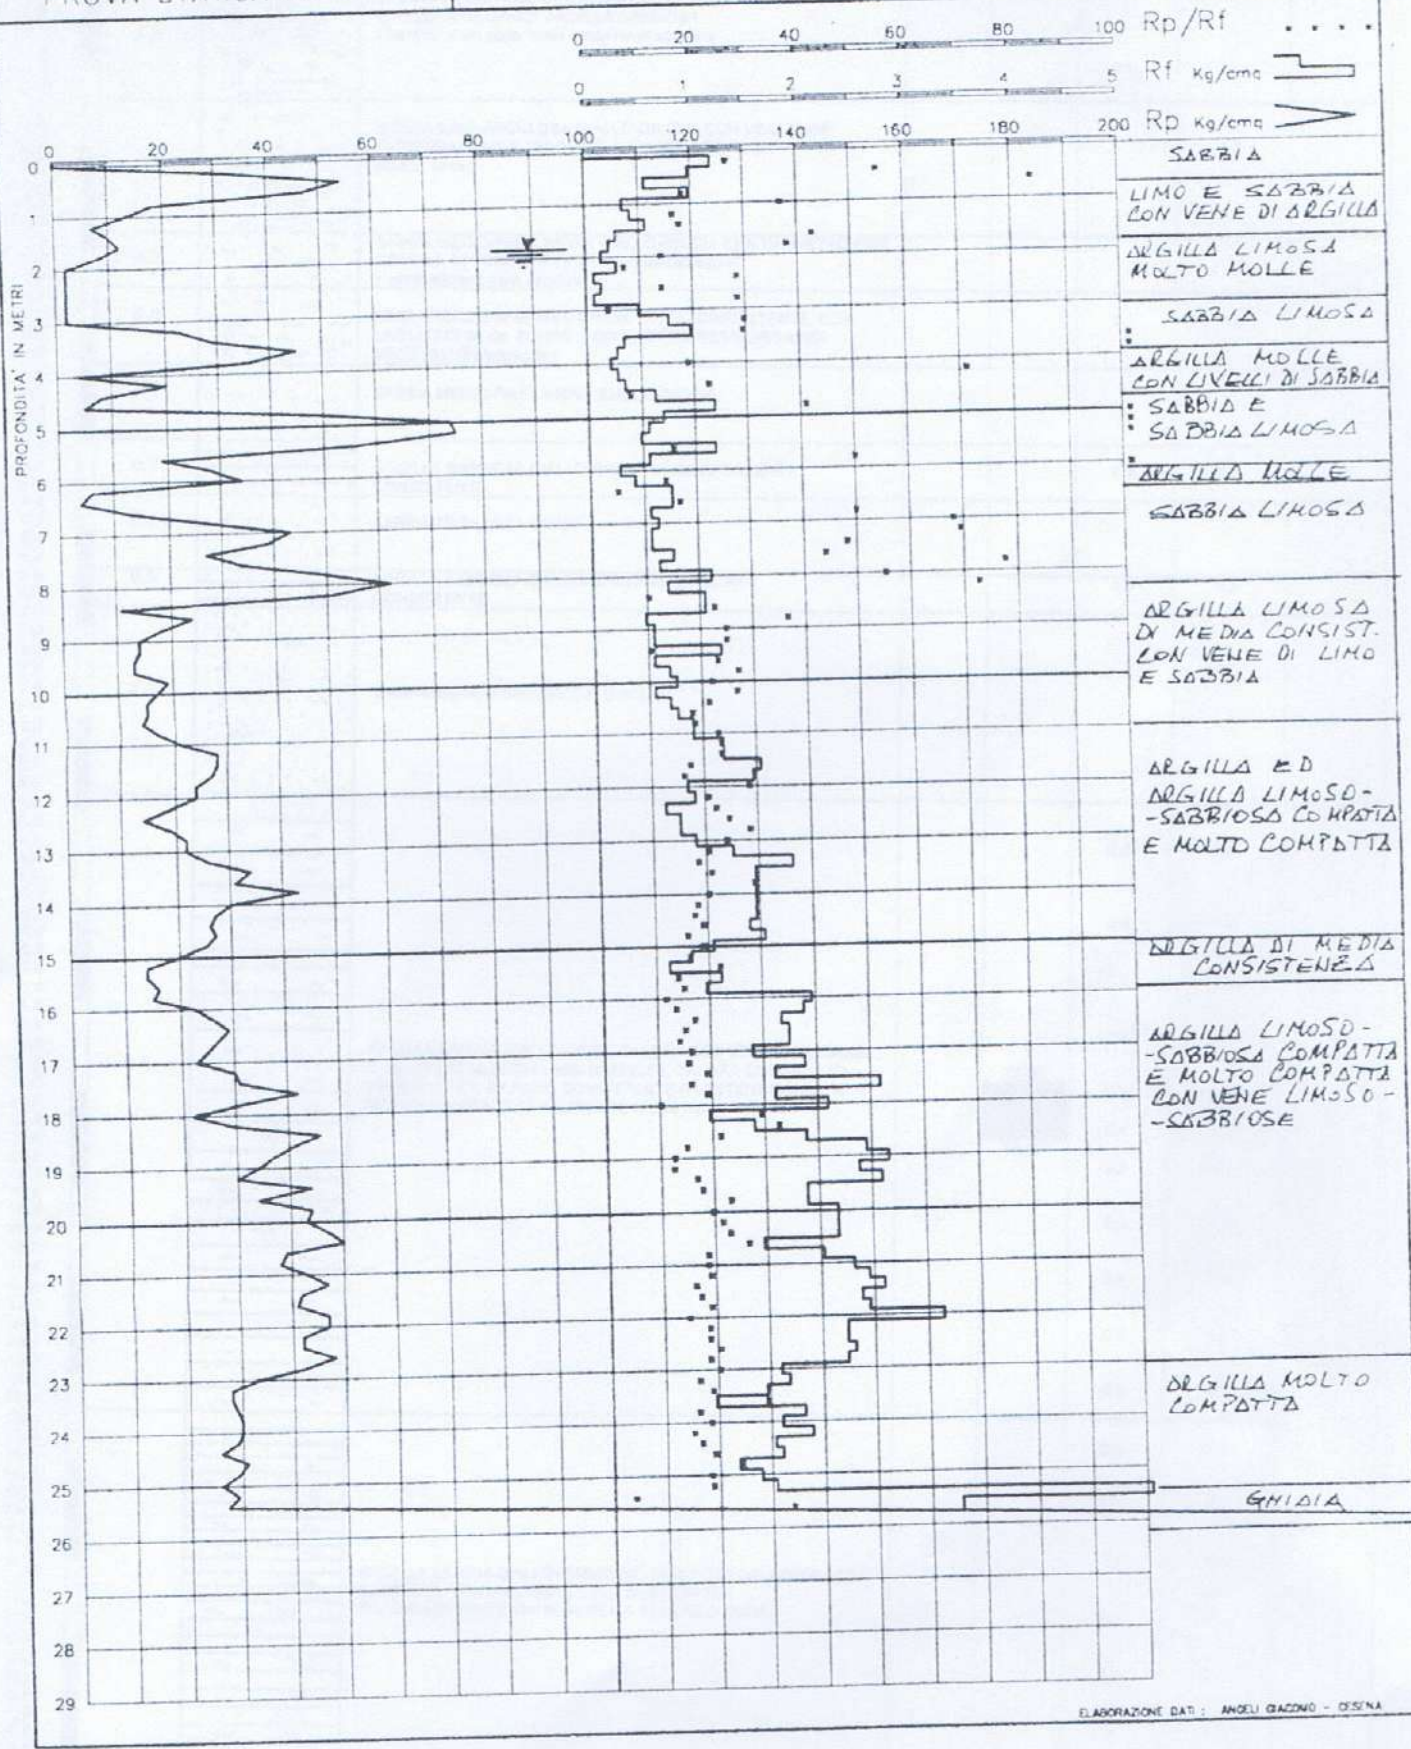 0 20 40 60 80 100 Rp/Rf
0 1 2 3 4 5 Rf Kg/cmq
0 20 40 60 80 100 120 140 160 180 200 Rp Kg/cmq
PROFONDITA' IN METRI
0
1
2
3
4
5
6
7
8
9
10
11
12
13
14
15
16
17
18
19
20
21
22
23
24
25
26
27
28
29
SABBIA
LIMO E SABBIA
CON VENE DI ARGILLA
ARGILLA LIMOSA
MOLTO MOLLE
SABBIA LIMOSA
ARGILLA MOLLE
CON LIVELLI DI SABBIA
SABBIA E
SABBIA LIMOSA
ARGILLA MOLLE
SABBIA LIMOSA
ARGILLA LIMOSA
DI MEDIA CONSIST.
CON VENE DI LIMO
E SABBIA
ARGILLA ED
ARGILLA LIMOSO-
-SABBIOSA COMPATTA
E MOLTO COMPATTA
ARGILLA DI MEDIA
CONSISTENZA
ARGILLA LIMOSO-
-SABBIOSA COMPATTA
E MOLTO COMPATTA
CON VENE LIMOSO-
-SABBIOSE
ARGILLA MOLTO
COMPATTA
GHIAIA
ELABORAZIONE DATI : ANGELI GIACOMO - CESENA